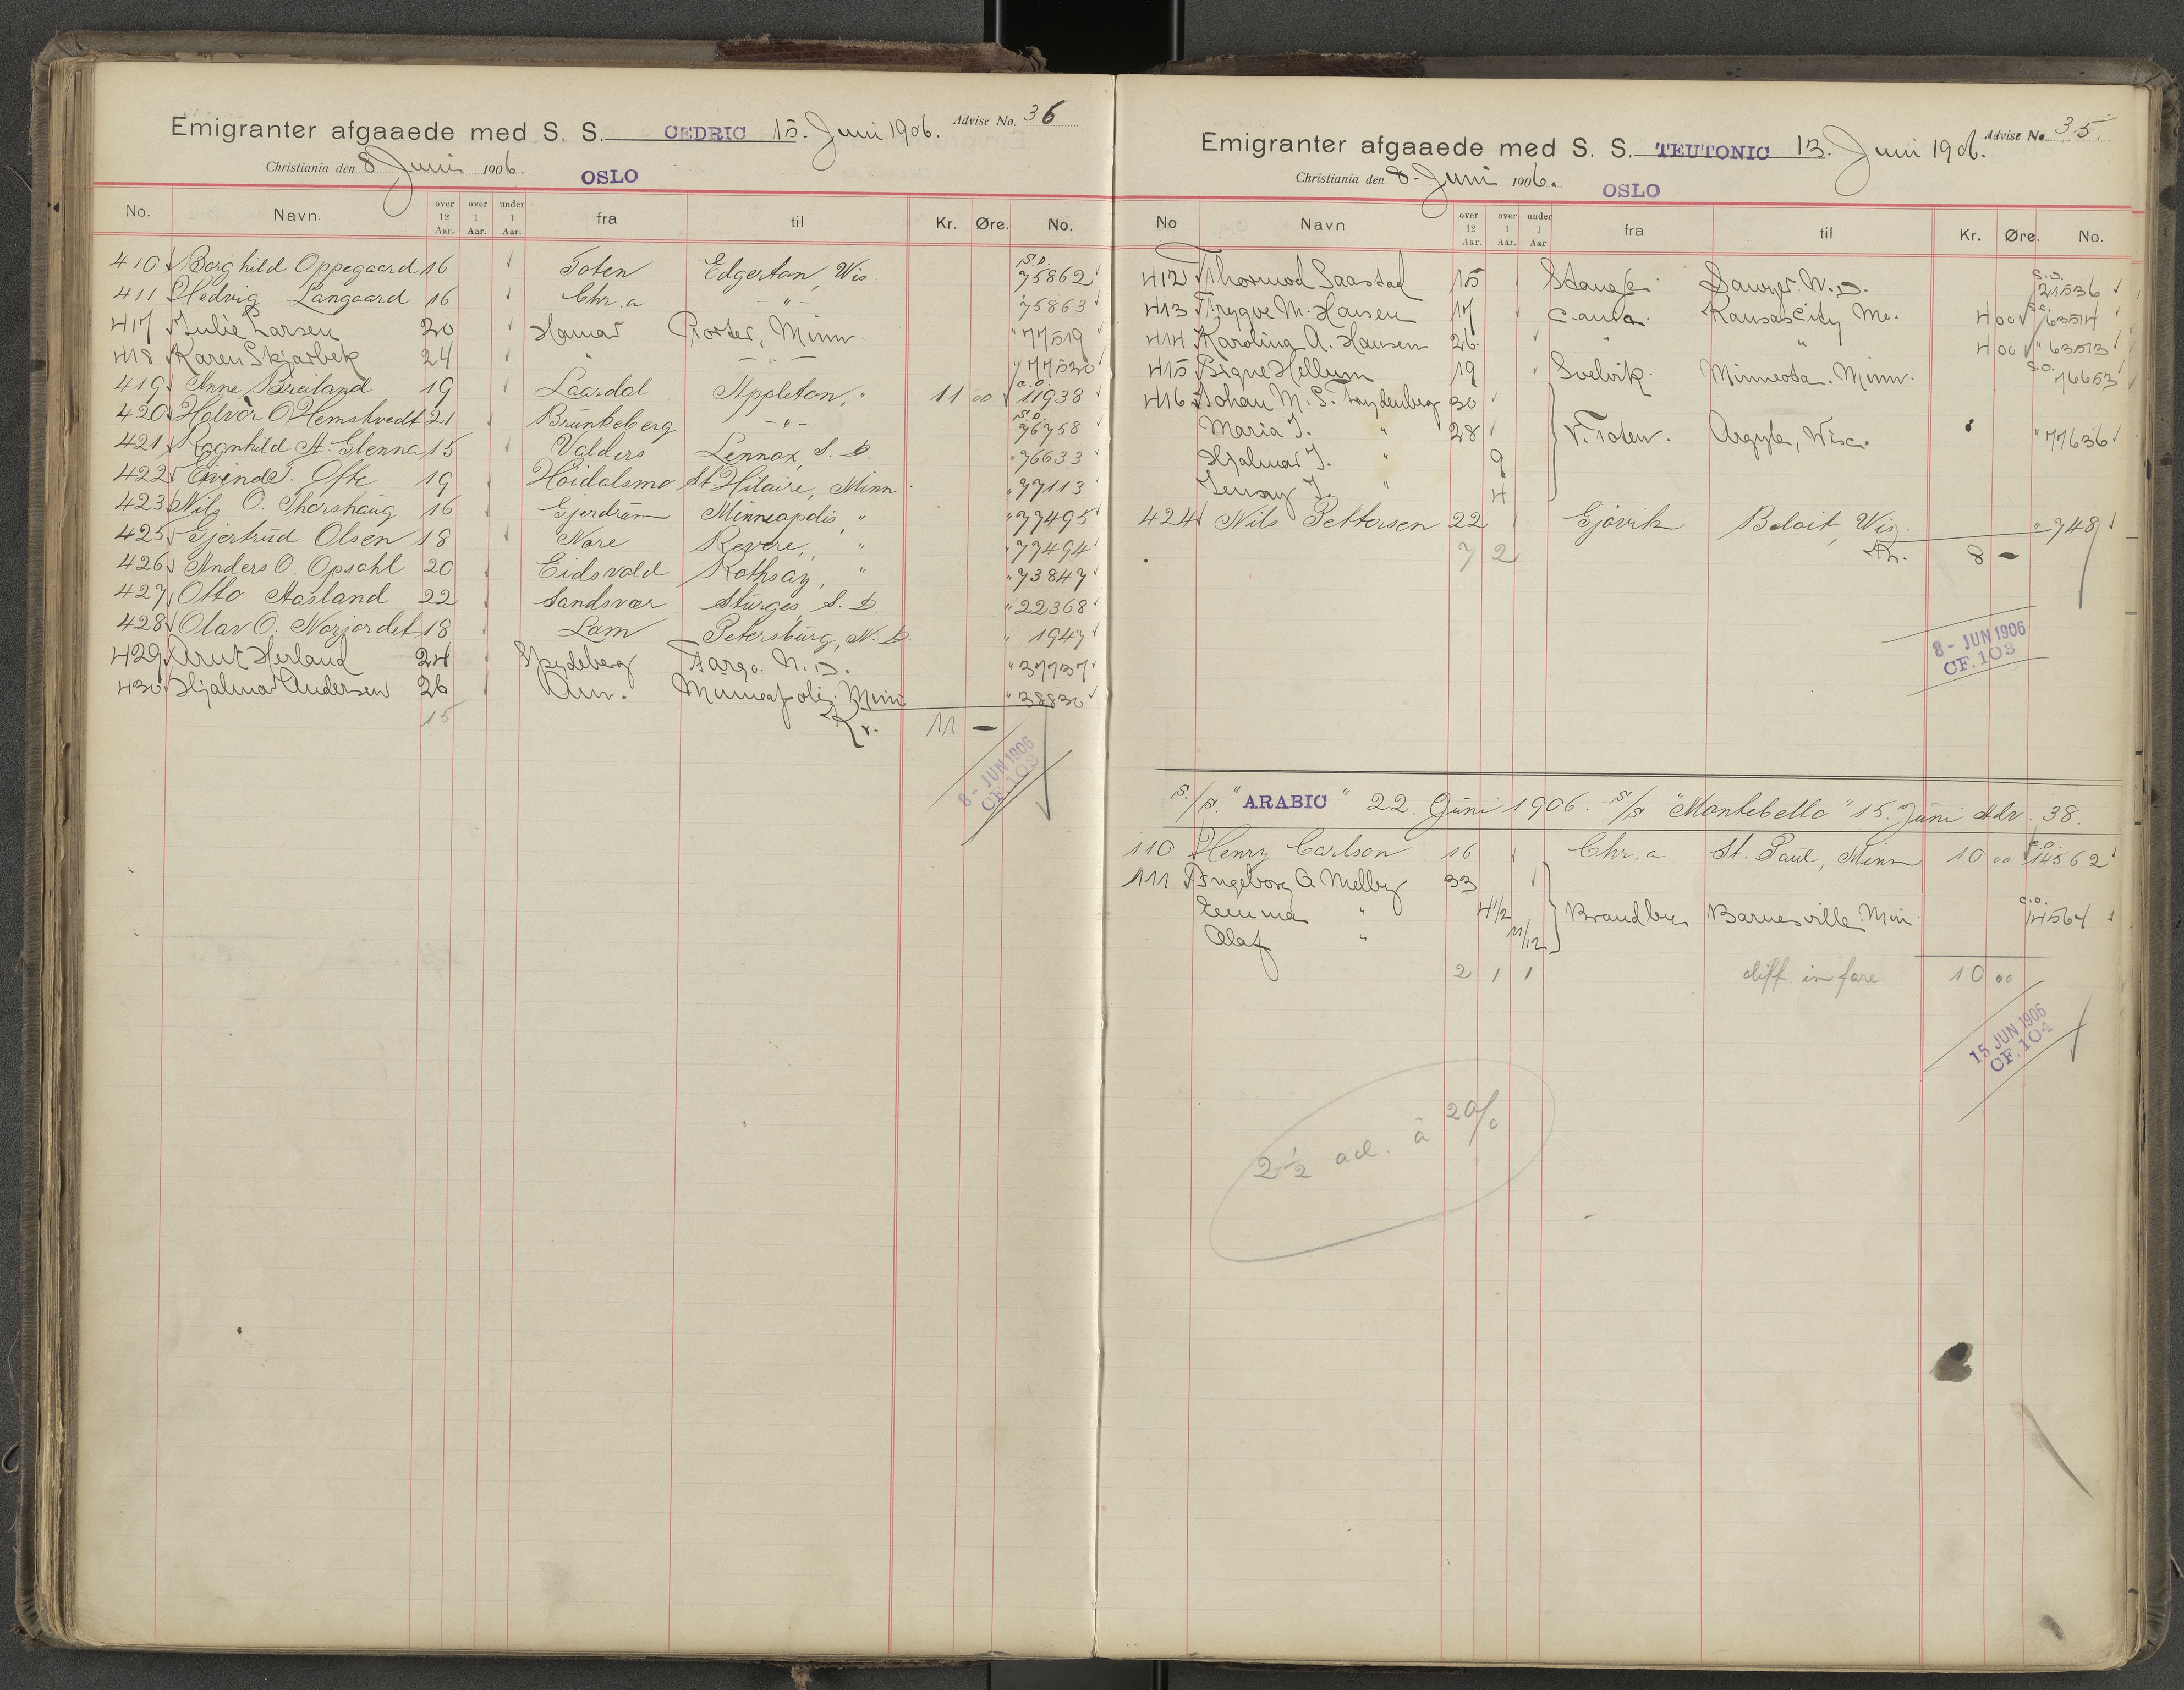 Emigranter afgaaede med S. S. CEDRIC 15. Juni 1906. Advise No. 36
Christiania den 8 Juni 1906. OSLO
No. Navn. over 12 Aar. over 1 Aar. under 1 Aar. fra til Kr. Øre. No.
410 Borghild Oppegaard 16 Toten Edgerton, Wis. S.O. 75862
411 Hedvig Langaard 16 Chr.a - " - " 75863
417 Julie Larsen 20 Hamar Porter, Minn. " 77519
418 Karen Skjærbek 24 " - " - " 77520
419 Anne Breiland 19 Laardal Appleton, " 11 00 C.O. 11938
420 Halvor O. Hemstvedt 21 Brunkeberg - " - S.O. 76758
421 Ragnhild A. Glenna 15 Valders Lennox, S. D. " 76633
422 Eivind T. Ofte 19 Höidalsmo St. Hilaire, Minn. " 77113
423 Nils O. Thorshaug 16 Gjerdrum Minneapolis, " " 77495
425 Gjertrud Olsen 18 Nore Revere, " " 77494
426 Anders O. Opsahl 20 Eidsvold Rothsay, " " 73847
427 Otto Aasland 22 Sandsvær Sturges, S. D. " 22368
428 Olav O. Norjordet 18 Lom Petersburg, N. D. " 1947
429 Arnt Herland 24 Spydeberg Fargo. N. D. " 37737
430 Hjalmar Andersen 26 Minneapolis. Minn " 38830
15 Kr. 11 -
8 - JUN 1906
CF. 103
Emigranter afgaaede med S. S. TEUTONIC 13. Juni 1906. Advise No. 35.
Christiania den 8 - Juni 1906. OSLO
No Navn over 12 Aar. over 1 Aar. under 1 Aar fra til Kr. Øre. No.
412 Thormod Saastad 15 Stange Sawyer. N. D. S.O. 21536
413 Trygve M. Hansen 17 C.ania Kansas City Mo. 4 00 S.C. 63514
414 Karolina A. Hansen 26 " " 4 00 " 63513
415 Signe Hellum 19 Svelvik. Minneota. Minn. S.O. 76653
416 Johan M. S. Frydenberg 30
Maria J. " 28 V. Toten. Argyle, Wisc. " 77636
Hjalmar J. " 9
Jenny J. " 4
424 Nils Pettersen 22 Gjövik Beloit, Wis. " 748
7 2 Kr. 8 -
8 - JUN 1906
CF. 103
S./S. " ARABIC " 22. Juni 1906. S/S "Montebello" 15. Juni Adv. 38.
110 Henry Carlson 16 Chr.a St. Paul, Minn 10 00 C.O. 14562
111 Ingeborg A Melby 33
Emma " 4 1/2 Brandbu Barnesville. Min. C.O. 14564
Olaf " 11/12
2 1 1 diff. in fare 10 00
15 JUN 1906
CF. 104
2 1/2 ad. à 20/0